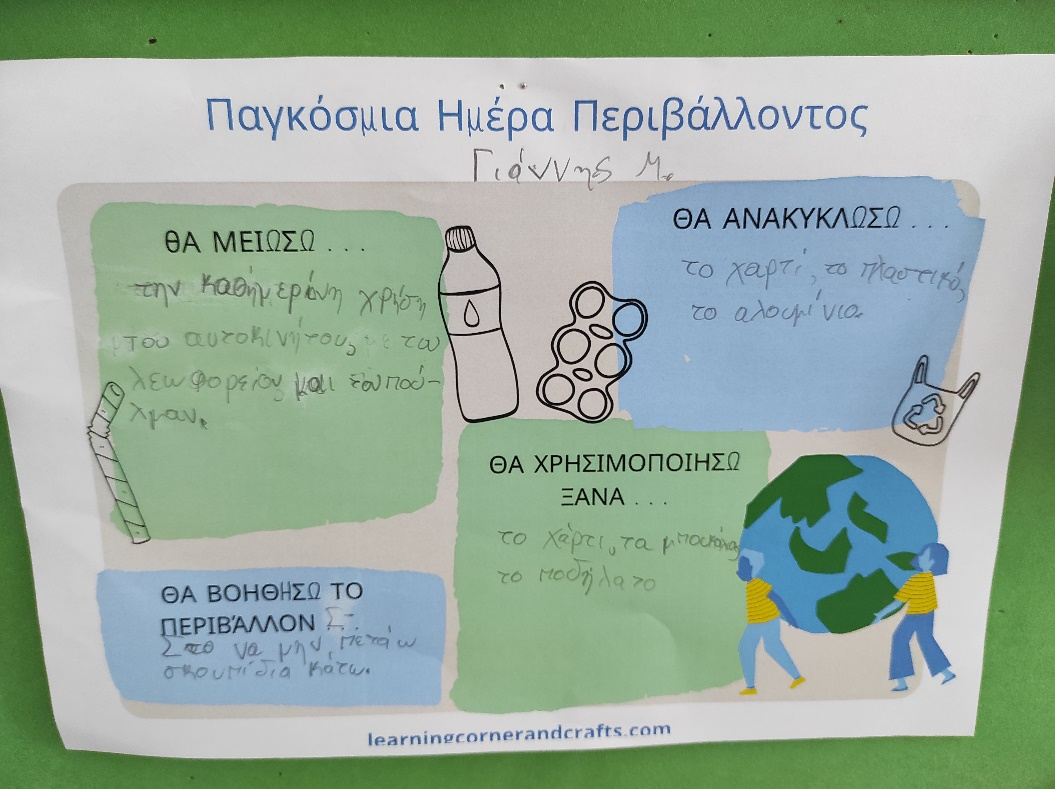 Παγκόσμια Ημέρα Περιβάλλοντος
Γιάννης Μ.
ΘΑ ΜΕΙΩΣΩ . . .
την καθημερινη χρήση
του αυτοκινήτου, με του
λεωφορείου και
ΘΑ ΑΝΑΚΥΚΛΩΣΩ . . .
το χαρτί, το πλαστικό,
το αλουμίνιο.
ΘΑ ΧΡΗΣΙΜΟΠΟΙΗΣΩ
ΞΑΝΑ . . .
το χάρτι, τα μπουκάλια
το ποδήλατο
ΘΑ ΒΟΗΘΗΣΩ ΤΟ
ΠΕΡΙΒΆΛΛΟΝ
Στο να μην πετάω
σκουπίδια κάτω.
learningcornerandcrafts.com